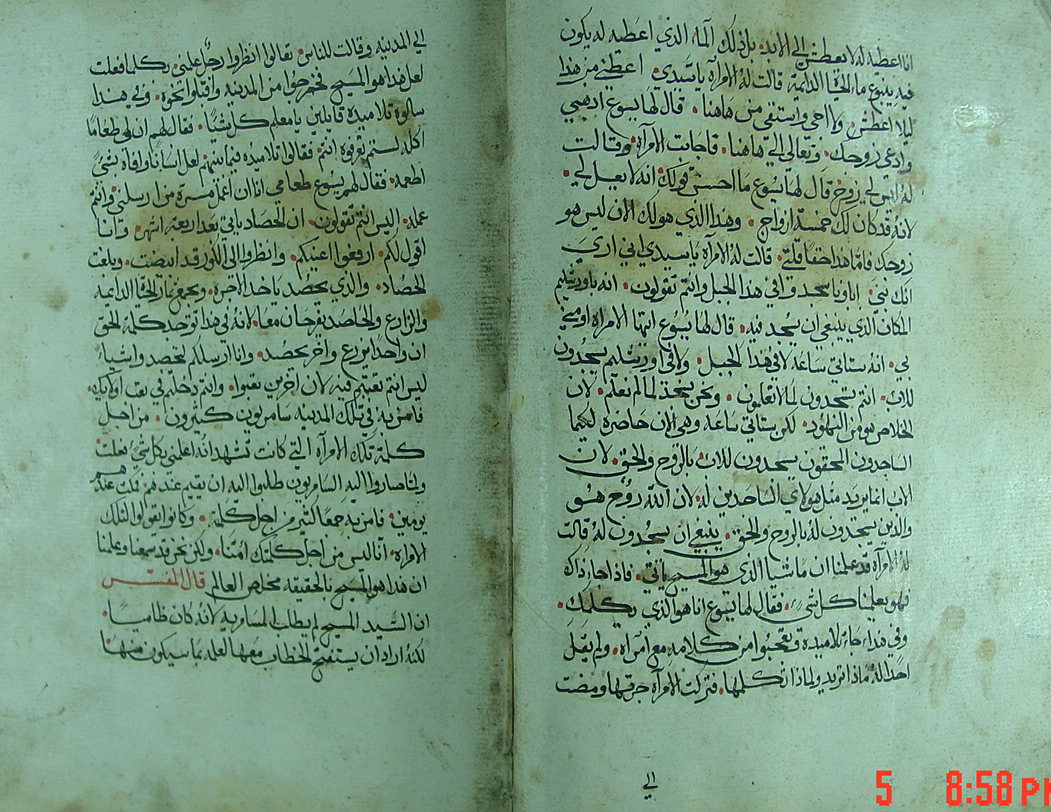 انا اعطيه له لا يعطش الي الابد. بل ذلك الما الذي اعطيه له يكون
فيه ينبوع ما الحياة الدايمة. قالت له الامراه يا سيدي اعطني من هذا
ليلا اعطش ولا اجي واستقي من هاهنا. قال لها يسوع اذهبي
وادعي زوجك وتعالي الي هاهنا. فاجابت الامراه وقالت
له ليس لي زوج قال لها يسوع ما احسن قولك انه لا بعل لي.
لانه قد كان لك خمسة ازواج. وهذا الذي هو لك الان ليس هو
زوجك فاما هذا حقا قلتي. قالت له الامراه يا سيدي اني اري
انك نبي. اباونا سجدوا في هذا الجبل وانتم تقولون. انه باورشليم
المكان الذي ينبغي ان يسجد فيه. قال لها يسوع ايتها الامراه اومني
بي. انه ستاتي ساعة لا في هذا الجبل. ولا في اورشليم يسجدون
للاب. انتم تسجدون لما لا تعلمون. ونحن نسجد لما نعلم. لان
الخلاص هو من اليهود. لكن ستاتي ساعه وهي الان حاضره لكيما
الساجدون المحقون يسجدون للاب بالروح والحق. لان
الاب انما يريد مثل هولاي الساجدين له. لان الله روح هو
والذين يسجدون له بالروح والحق. ينبغي ان يسجدون له قالت
له الامراه قد علمنا ان ماشيا الذي هو المسيح ياتي. فاذا جا ذاك
فهو يعلمنا كل شي. فقال لها يسوع انا هو الذي يكلمك.
وفي هذا جاء تلاميذه وتعجبوا من كلامه مع امراه. ولم يقل
احد له ماذا تريد ولماذا تكلمها. فتركت الامراه جرتها ومضت
الي
الي المدينه وقالت للناس. تعالوا انظروا رجل علمني بكلما فعلت
لعل هذا هو المسيح فخرجوا من المدينه واقبلوا نحوه. وفي هذا
سالوه تلاميذه قايلين يا معلم كل شيئا. فقال لهم ان لي طعاما
اكله لستم تعرفوه انتم. فقالوا تلاميذه فيما بينهم لعل انسانا وافاه بشي
اطعمه. فقال لهم يسوع طعامي انا ان اعمل مسرة من ارسلني واتم
عمله. اليس انتم تقولون. ان الحصاد ياتي بعد اربعة اشهر. وانا
اقول لكم. ارفعوا اعينكم. وانظروا الي الكور قد ابيضت. وبلغت
الحصاد. والذي يحصد ياخذ الاجره. ويجمع ثمار الحياة الدايمه
والزارع والحاصد يفرحان معا. لانه في هذا توجد كلمة الحق
ان واحدا يزرع واخر يحصد. وانا ارسلكم لتحصدوا شيا
ليس انتم تعبتم فيه لان اخرين تعبوا. وانتم دخلتم في تعب اولايك.
فامن به في تلك المدينه سامريون كثيرون. من اجل
كلمة تلك الامراه التي كانت تشهد انه اعلمني بكل شي فعلت
ولما صاروا اليه السامريون طلبوا اليه ان يقيم عندهم فمكث عندهم
يومين. فامن به جمعا كثير من اجل كلمته. وكانوا يقولوا لتلك
الامراه. انا ليس من اجل كلمتك امنا. ولكن نحن قد سمعنا وعلمنا
ان هذا هو المسيح بالحقيقه مخلص العالم قال المفسر
ان السيد المسيح لم يطلب الما من السامريه لانه كان ظاميا.
لكنه اراد ان يستفتح الخطاب معها لعلمه بما سيكون منها
5 8:58 PM